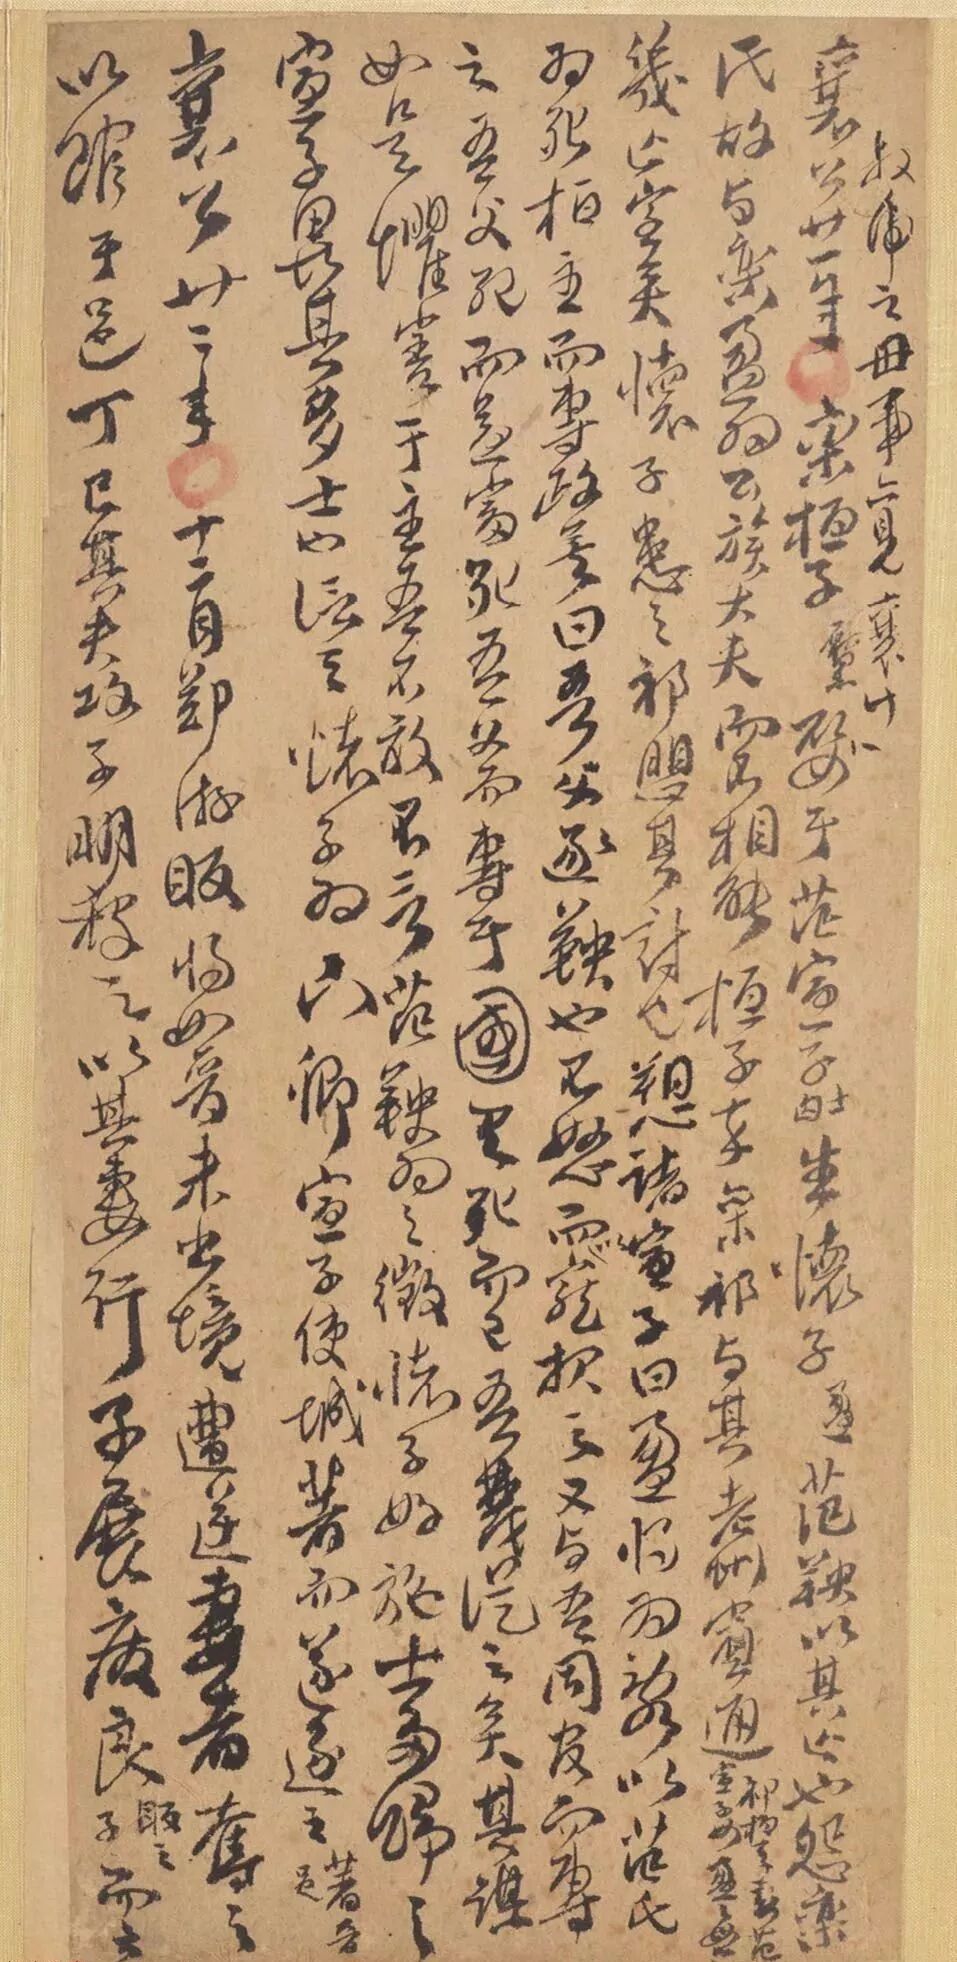 叔虎之母事亦見襄廿
襄公廿一年 欒桓子黶娶于范宣子匄生懷子盈范鞅以其亡也怨欒
氏故与欒盈为公族大夫而不相能桓子卒欒祁与其老州賓通祁桓子妻范宣子女盈母
幾亡室矣懷子患之祁懼其討也愬諸宣子曰盈将为乱以范氏
为死桓主而專政矣曰吾父逐鞅也不怒而寵报之又与吾同官而專
之吾父死而益富死吾父而專于國有死而已吾蔑從之矣其謀
如是懼害于主吾不敢不言范鞅为之徵懷子好施士多歸之
宣子畏其多士也信之懷子为下卿宣子使城著而遂逐之著晉邑
襄公廿二年 十二月鄭游眅将如晉未出境遭逆妻者奪之
以館于邑丁巳其夫攻子明殺之以其妻行子展廢良眅之子而立